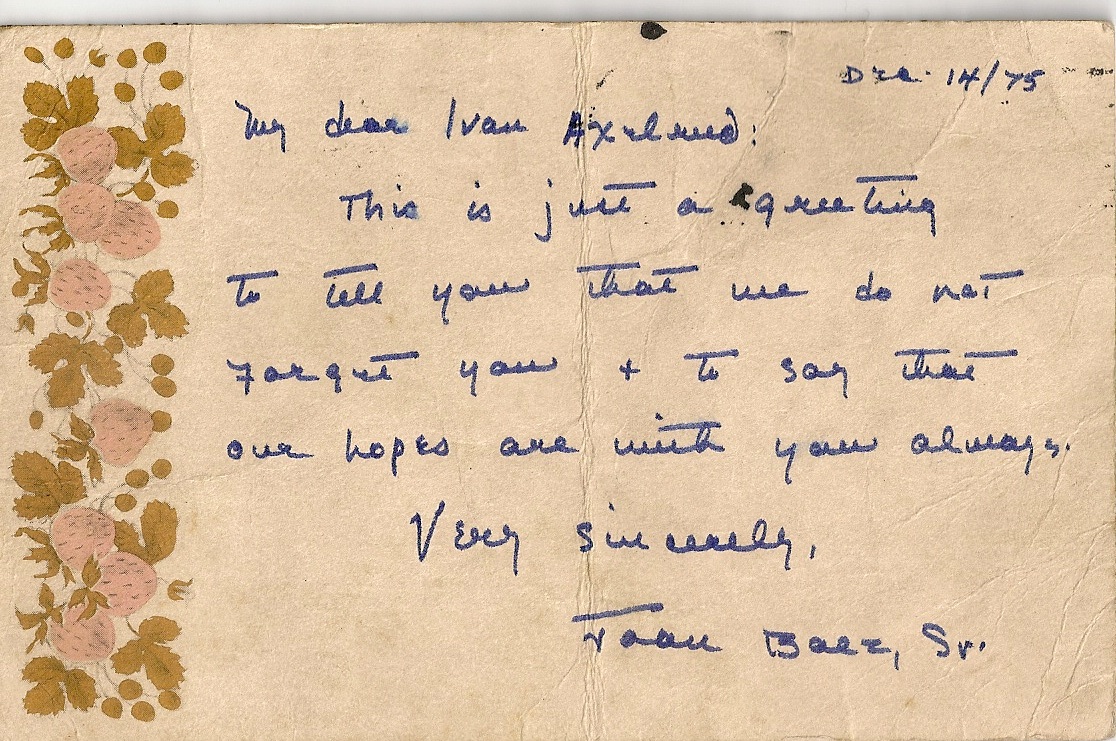 Dec. 14/75
My dear Ivan Axelrod:
This is just a greeting
to tell you that we do not
forget you + to say that
our hopes are with you always.
Very sincerely,
Joan Baez, Sr.